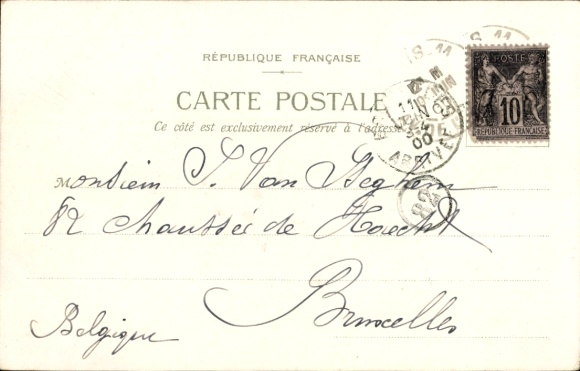 RÉPUBLIQUE FRANÇAISE
CARTE POSTALE
Ce côté est exclusivement réservé à l'adresse
POSTE
10
RÉPUBLIQUE FRANÇAISE
ARRIVÉE
00
Monsieur J. Van Seghem
82 chaussée de Haecht
Bruxelles
Belgique